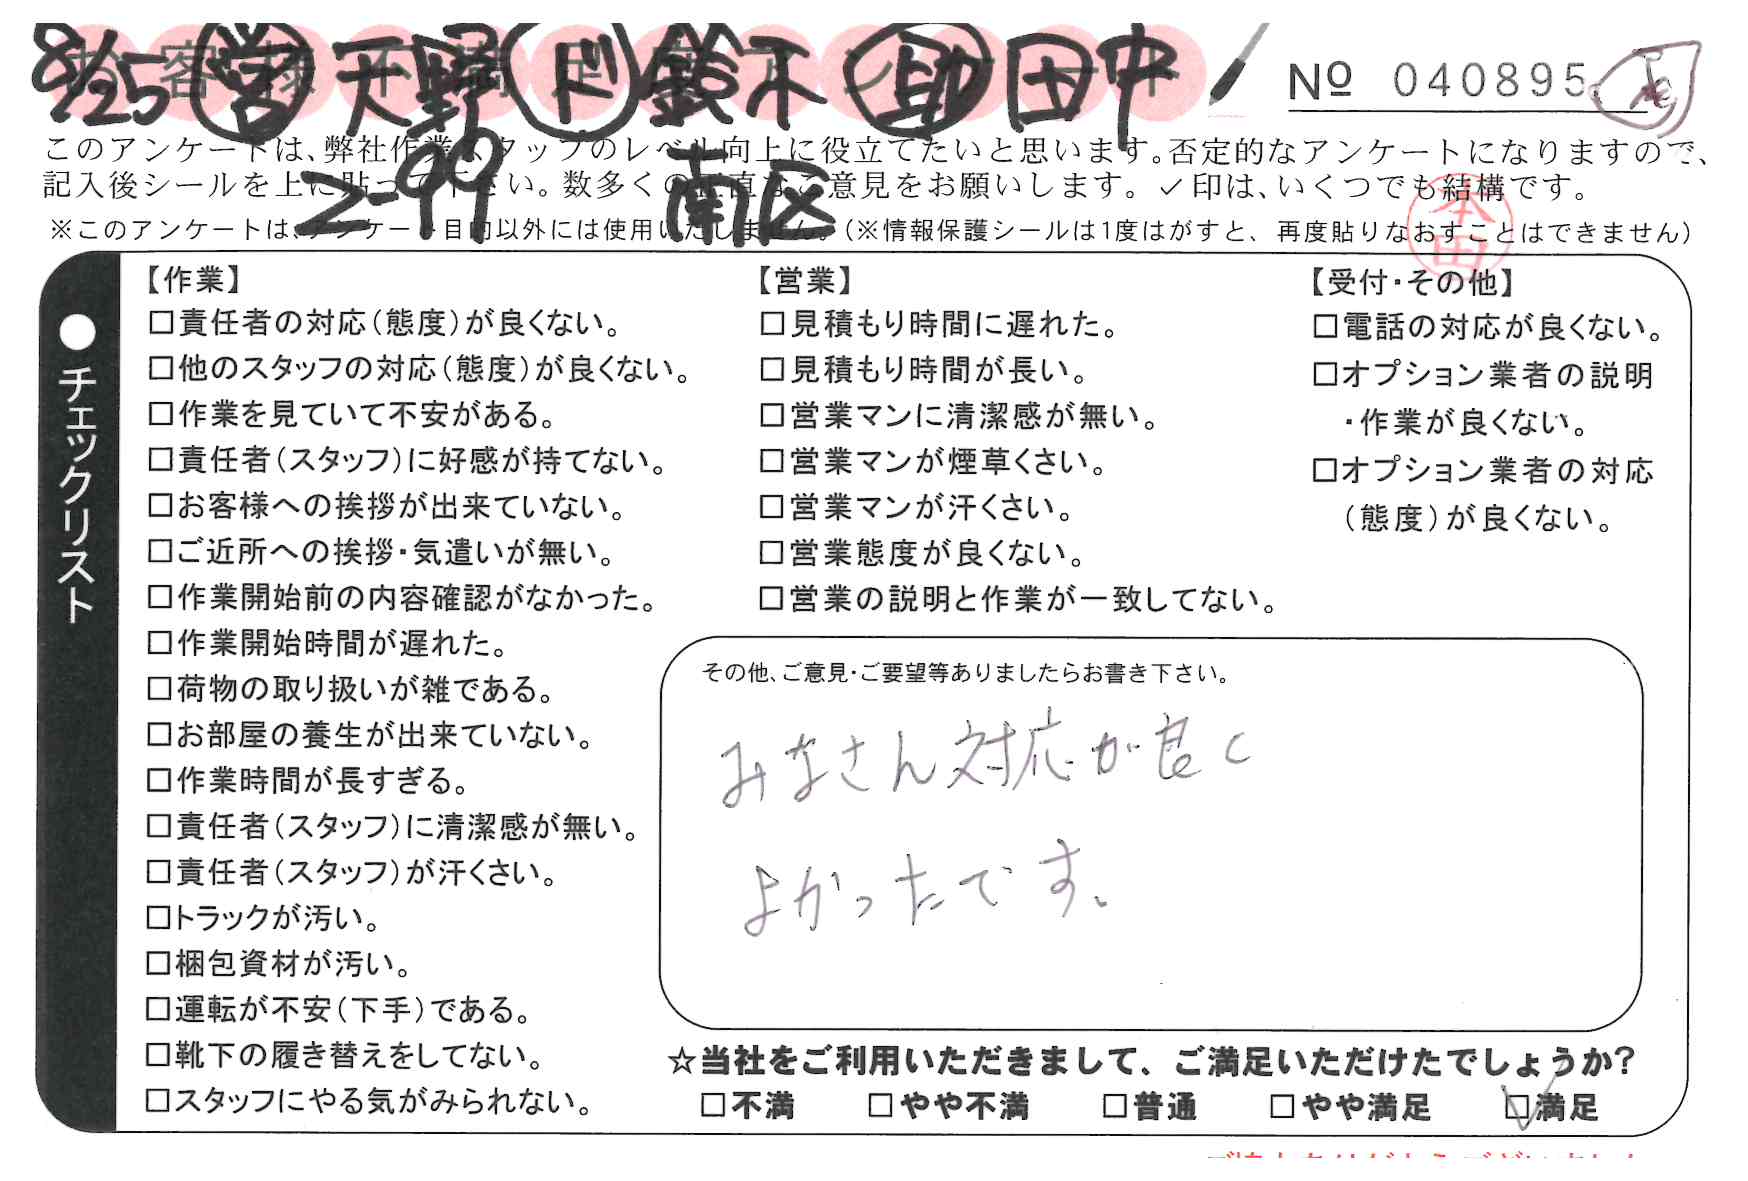 8/25 営 天野 ド 鈴木 助 田中
お客様不満足度アンケート
№ 040895
2-99 南区
このアンケートは、弊社作業スタッフのレベル向上に役立てたいと思います。否定的なアンケートになりますので、
記入後シールを上に貼って下さい。数多くの正直なご意見をお願いします。✓印は、いくつでも結構です。
※このアンケートは、アンケート目的以外には使用いたしません。(※情報保護シールは1度はがすと、再度貼りなおすことはできません)
本田
●チェックリスト
【作業】
□責任者の対応(態度)が良くない。
□他のスタッフの対応(態度)が良くない。
□作業を見ていて不安がある。
□責任者(スタッフ)に好感が持てない。
□お客様への挨拶が出来ていない。
□ご近所への挨拶・気遣いが無い。
□作業開始前の内容確認がなかった。
□作業開始時間が遅れた。
□荷物の取り扱いが雑である。
□お部屋の養生が出来ていない。
□作業時間が長すぎる。
□責任者(スタッフ)に清潔感が無い。
□責任者(スタッフ)が汗くさい。
□トラックが汚い。
□梱包資材が汚い。
□運転が不安(下手)である。
□靴下の履き替えをしてない。
□スタッフにやる気がみられない。
【営業】
□見積もり時間に遅れた。
□見積もり時間が長い。
□営業マンに清潔感が無い。
□営業マンが煙草くさい。
□営業マンが汗くさい。
□営業態度が良くない。
□営業の説明と作業が一致してない。
【受付・その他】
□電話の対応が良くない。
□オプション業者の説明
・作業が良くない。
□オプション業者の対応
(態度)が良くない。
その他、ご意見・ご要望等ありましたらお書き下さい。
みなさん対応が良く
よかったです。
☆当社をご利用いただきまして、ご満足いただけたでしょうか?
□不満 □やや不満 □普通 □やや満足 ☑満足